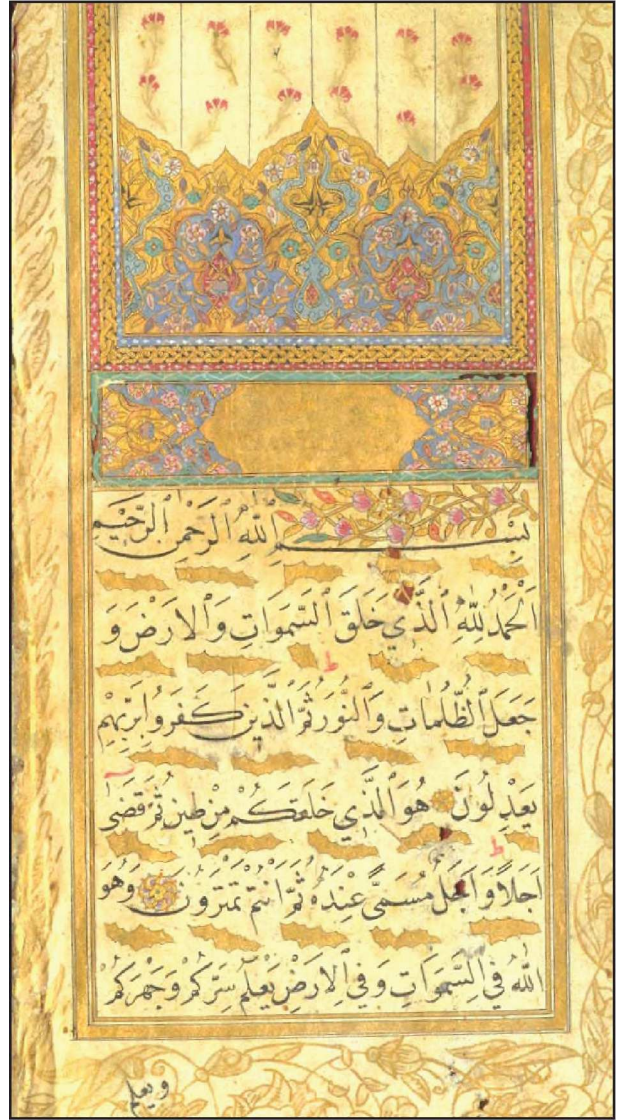 بِسْمِ اللّٰهِ الرَّحْمٰنِ الرَّحِيْمِ
اَلْحَمْدُ لِلّٰهِ الَّذِي خَلَقَ السَّمٰوَاتِ وَالْاَرْضَ وَ
جَعَلَ الظُّلُمَاتِ وَالنُّورَ ثُمَّ الَّذِينَ كَفَرُوا بِرَبِّهِمْ
يَعْدِلُونَ هُوَ الَّذِي خَلَقَكُمْ مِنْ طِينٍ ثُمَّ قَضٰى
ط
اَجَلًا وَاَجَلٌ مُسَمًّى عِنْدَهُ ثُمَّ اَنْتُمْ تَمْتَرُونَ وَهُوَ
ط
اللّٰهُ فِي السَّمٰوَاتِ وَفِي الْاَرْضِ يَعْلَمُ سِرَّكُمْ وَجَهْرَكُمْ
ويعلم